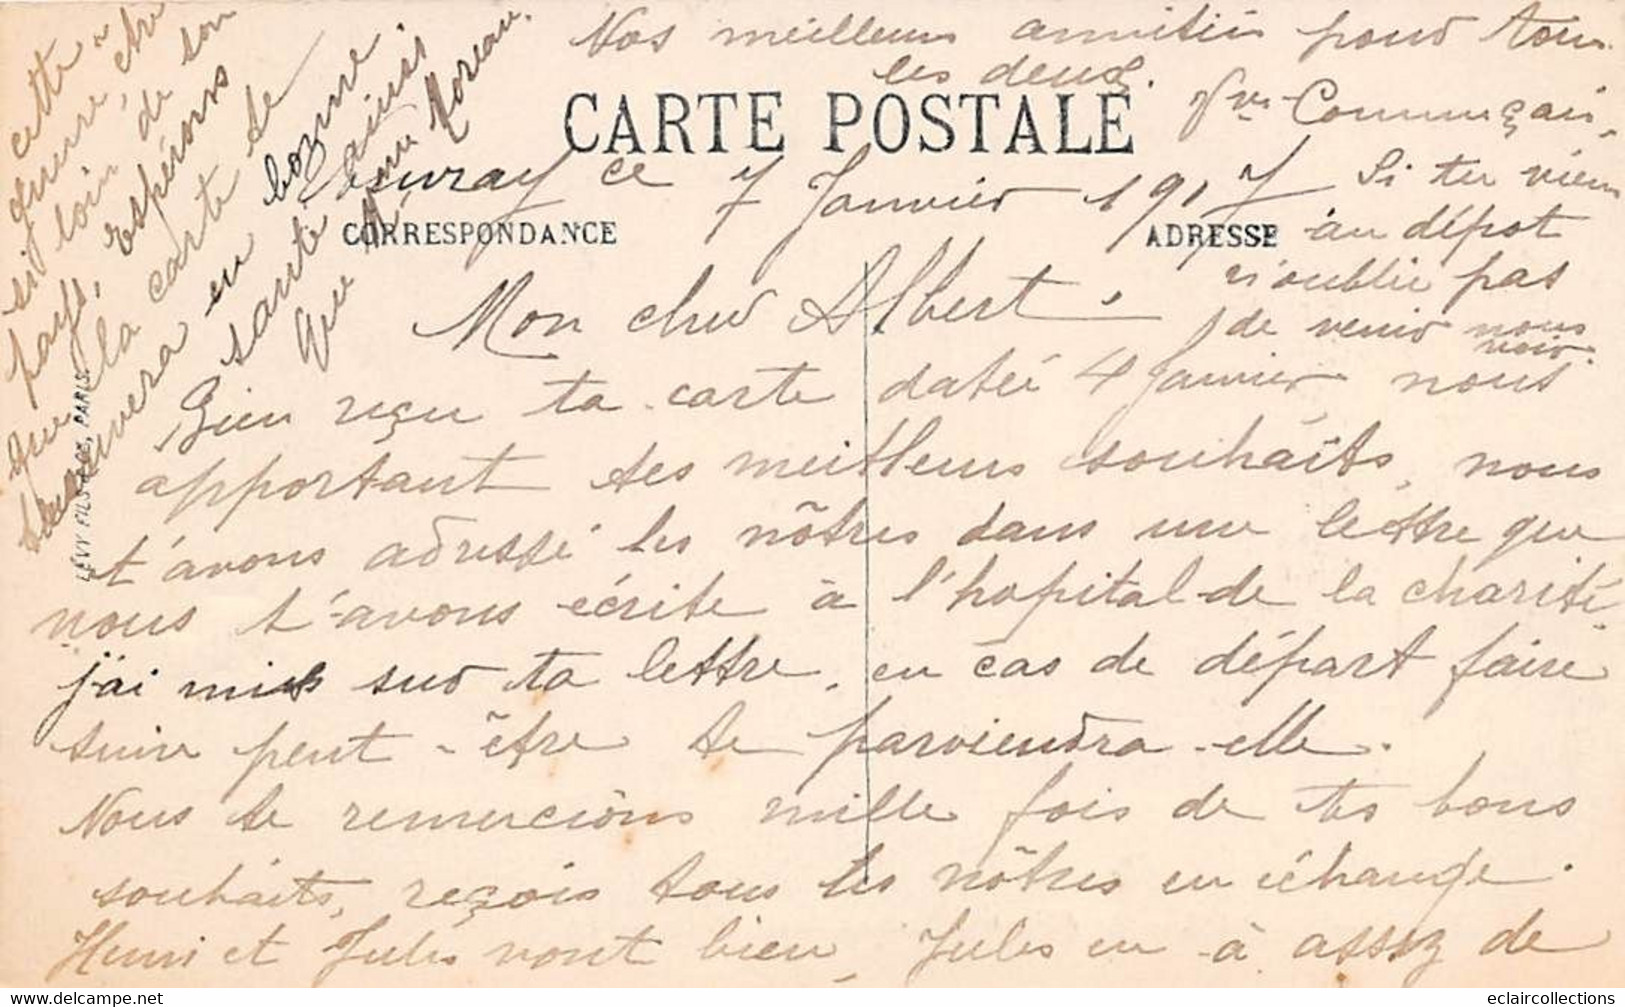 CARTE POSTALE
CORRESPONDANCE
ADRESSE
ce 7 Janvier 1917
Mon cher Albert,
Bien reçu ta carte datée 4 Janvier nous
apportant tes meilleurs souhaits, nous
t'avons adressé les nôtres dans une lettre que
nous t'avons écrite à l'hopital de la charité,
j'ai mis sur ta lettre, en cas de départ faire
suivre peut-être te parviendra-elle.
Nous te remercions mille fois de tes bons
souhaits, reçois tous les nôtres en échange.
Henri et Jules vont bien, Jules en a assez de
cette
guerre, être
si loin de son
pays, espérons
que la carte te
trouvera en bonne
santé ainsi
que Mme Moreau.
Nos meilleures amitiés pour tous
les deux.
Commençais,
Si tu viens
au dépot
n'oublie pas
de venir nous
voir.
LEVY FILS & Cie, PARIS.
eclaircollections